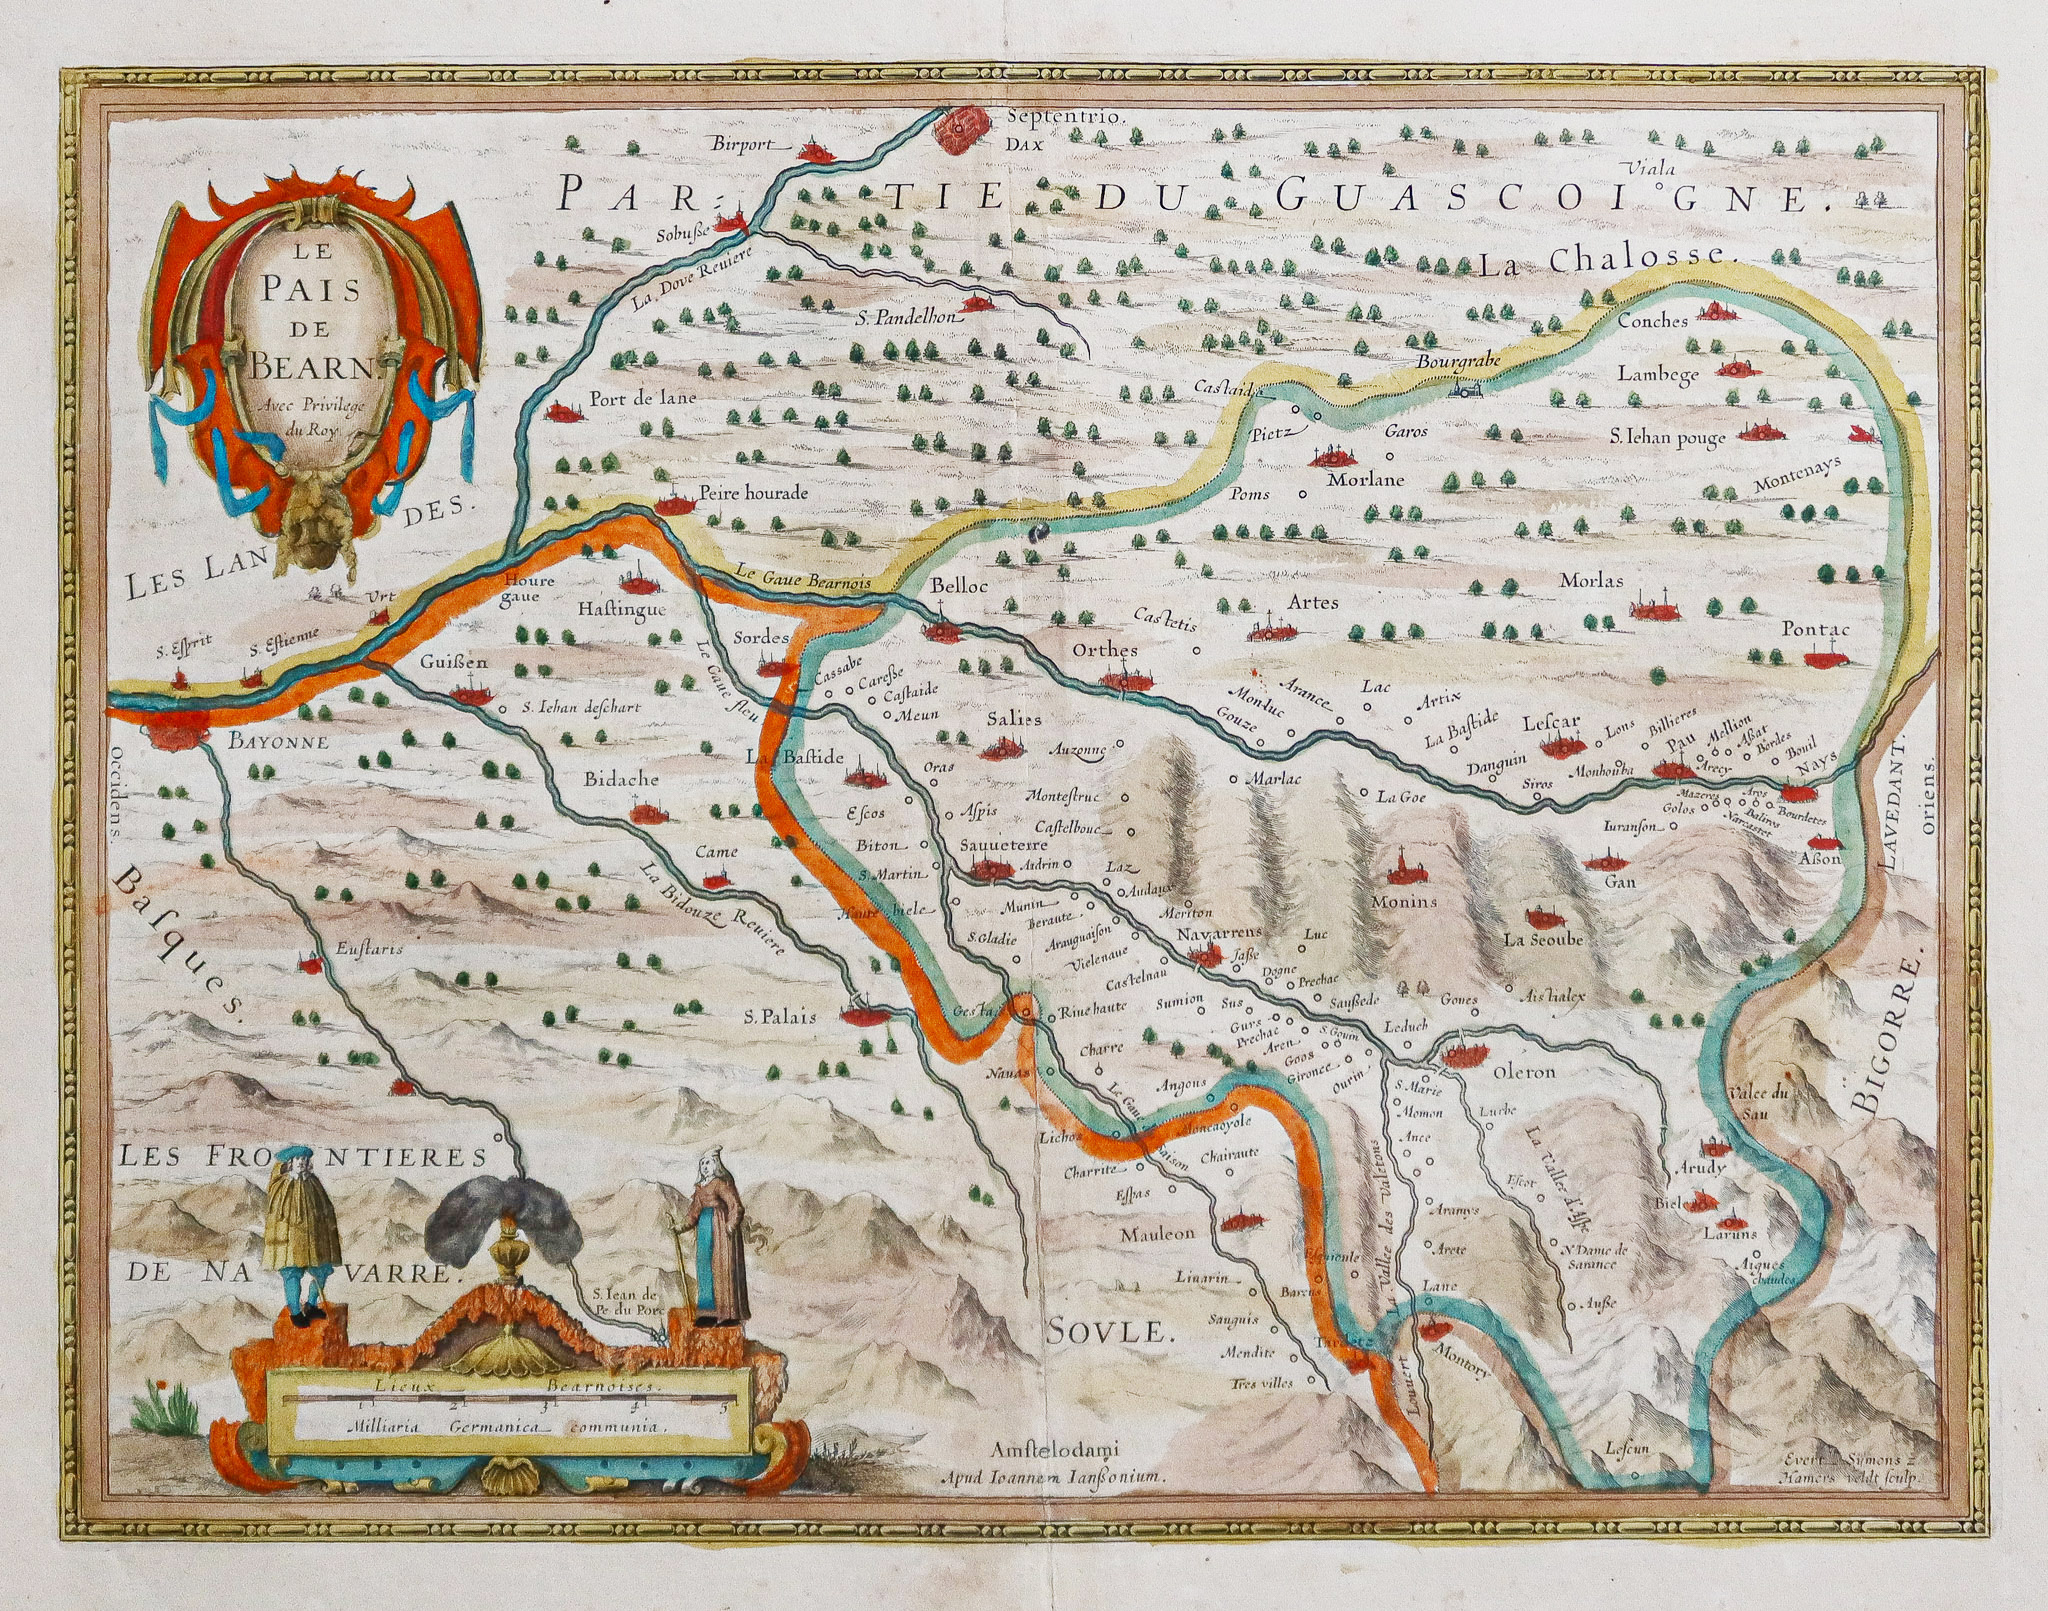 Septentrio.
DAX
Birport
PAR= TIE DU GUASCOIGNE.
Viala
Sobuſse
La Chalosse.
LE
PAIS
DE
BEARN.
Avec Privilege
du Roy
La Dove Reuiere
S. Pandelhon
Conches
Bourgrabe
Lambege
Port de lane
Pietz
Garos
S. Iehan pouge
Morlane
Montenays
Peire hourade
Poms
LES LAN DES.
Le Gaue Bearnois
Houre
gaue
Haſtingue
Belloc
Morlas
Artes
Caſtetis
Vrt
S. Eſprit
S. Eſtienne
Sordes
Pontac
Orthes
Guißen
Caſſabe
Careſſe
Caſtaide
Meun
Le Gaue fleu
S. Iehan deſchart
Monluc
Arance
Lac
Artix
Gouze
La Baſtide
Leſcar
Lons
Billieres
Pau
Mellion
Aßat
Bordes
Bouil
Nays
Arecy
BAYONNE
Occidens.
Salies
Auzonne
La Baſtide
Danguin
Monhouba
Siros
Mazeres
Aros
Bourdetes
Baliros
Narcastet
Golos
LAVEDANT.
Oriens.
Bidache
Oras
Marlac
Monteſtruc
La Goe
Eſcos
Aſpis
Caſtelbouc
Iuranſon
Biton
Sauueterre
Aſſon
Came
Audrin
Laz
Gan
S. Martin
Audaux
Baſques.
La Bidouze Reuiere
Munin
Monins
Beraute
Meriton
Navarrens
Luc
La Seoube
S. Gladie
Arauguaiſon
Iaße
Vielenaue
Euſtaris
Caſtelnau
Dogne
Prechac
BIGORRE.
S. Palais
Riuehaute
Sumion
Sus
Saußede
Goues
Gurs
Prechac
S. Goum
Leduch
Aren
Goos
Gironce
Ourin
Charre
Nauas
Angous
Oleron
S. Marie
Momon
Lurbe
Valee du
Sau
Lichos
Moncaoyole
Ance
Chairaute
LES FRONTIERES
Charrite
Arudy
Eſpas
Eſcot
La Vallee d'Aſpe
La Vallee des Valetons
Mauleon
Aramys
Laruns
Arete
N Dame de
Sarance
Aigues
chaudes
DE NAVARRE.
Liuarin
Lane
Auße
S. Iean de
Pe du Porc
SOVLE.
Sauguis
Mendite
Montory
Tres villes
Louuert
Lieux Bearnoises.
1 2 3 4 5
Milliaria Germanica communia.
Amſtelodami
Apud Ioannem Ianßonium.
Leſcun
Evert Symons z
Hamers veldt ſculp.